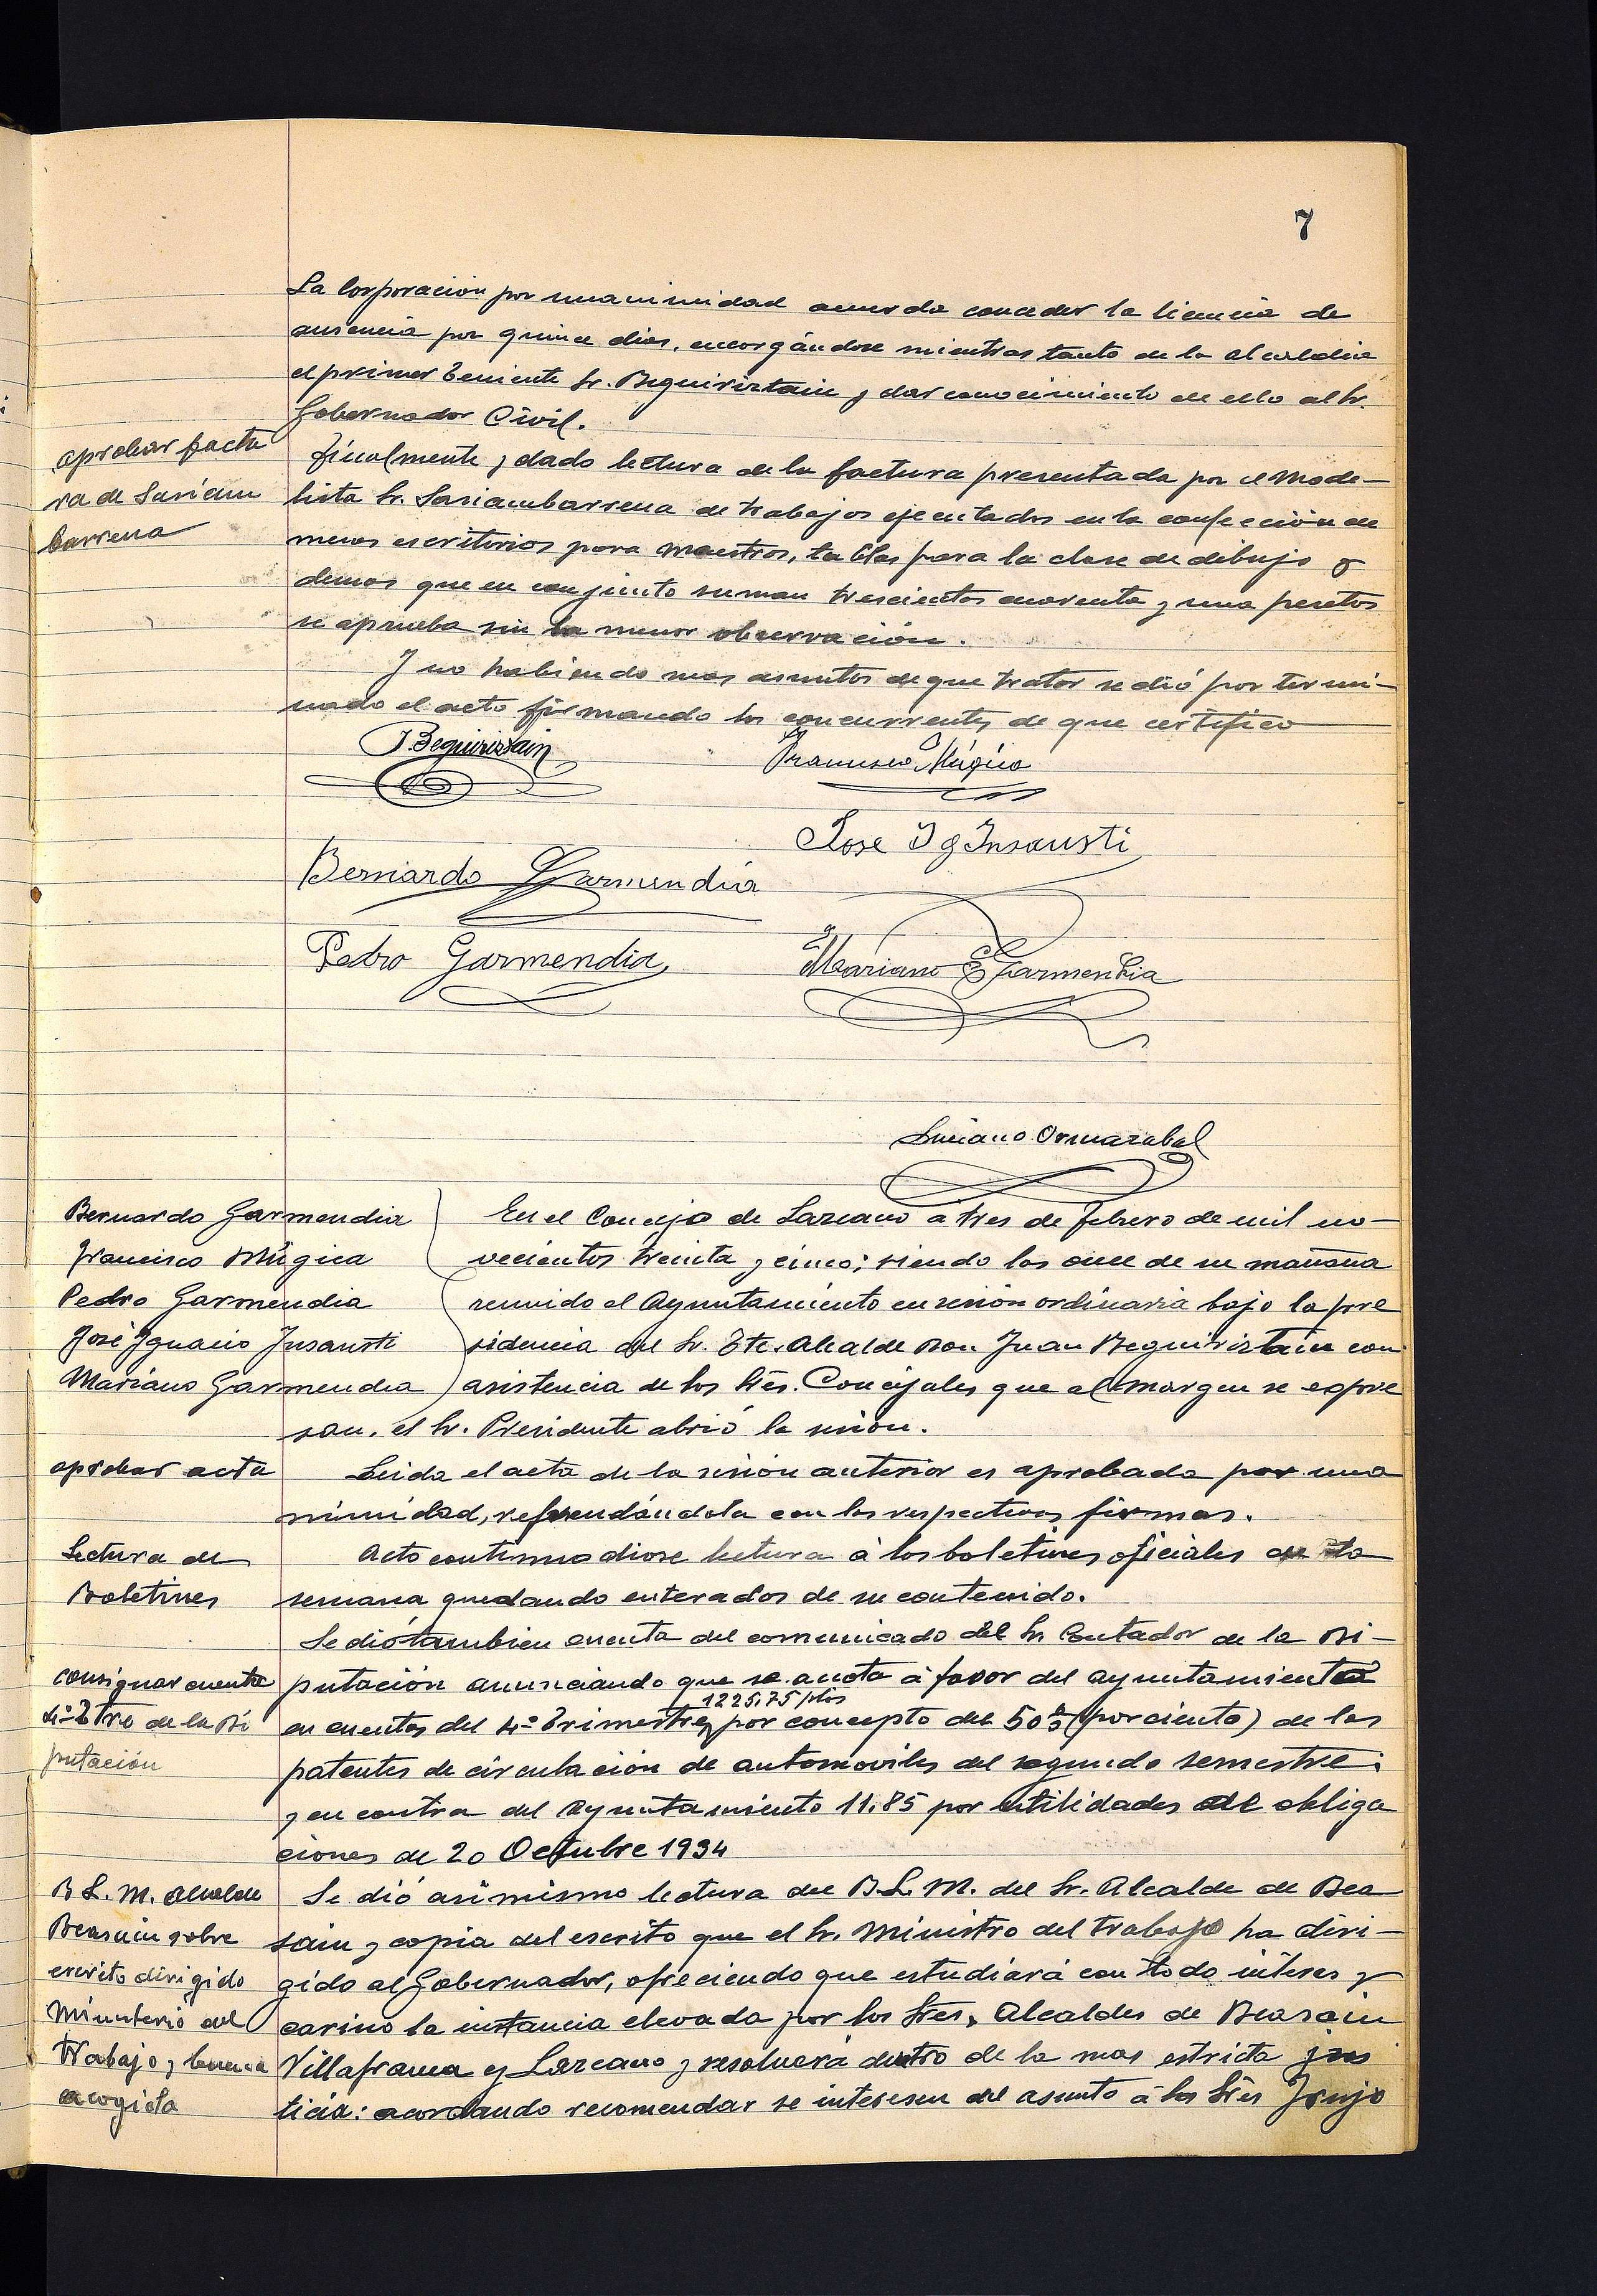 7
La Corporación por unanimidad acuerda conceder la licencia de
ausencia por quince dias, encorgándose mientras tanto de la alcaldia
el primer Teniente Sr. Beguiristain y dar conocimiento de ello al Sr.
Gobernador Civil.
aprobar factu
ra de Sasiam
barrena
Finalmente, dado lectura de la factura presentada por el mode-
lista Sr. Sasiambarrena de trabajos ejecutados en la confección de
mesas escritorios para maestros, tablas para la clase de dibujo y
demas que en conjunto suman trescientas cuarenta y una pesetas
se aprueba sin la menor observación.
Y no habiendo mas asuntos de que tratar se dió por termi-
nado el acto firmando los concurrentes de que certifico
J Beguiristain
Francisco Múgica
Jose Ig Insausti
Bernardo Garmendia
Pedro Garmendia
Mariano Garmendia
Luciano Ormazabal
Bernardo Garmendia
Francisco Múgica
Pedro Garmendia
José Ignacio Insausti
Mariano Garmendia
En el Concejo de Lazcano a tres de Febrero de mil no-
vecientos treinta y cinco; siendo las once de su mañana
reunido el Ayuntamiento en sesión ordinaria bajo la pre
sidencia del Sr. Tte. Alcalde Don Juan Beguiristain con
asistencia de los Sres. Concejales que al margen se expre
san. el Sr. Presidente abrió la sesión.
aprobar acta
Leida el acta de la sesión anterior es aprobada por una
nimidad, refrendándola con las respectivas firmas.
Lectura de
Boletines
Acto continuo diose lectura á los boletines oficiales de la
semana quedando enterados de su contenido.
Se dió tambien cuenta del comunicado del Sr Contador de la Di-
consignar cuenta
4º Ttre de la Di
putación
putación anunciando que se anota á favor del Ayuntamiento
1225,75 ptas
en cuentas del 4º Trimestre, por concepto del 50% (por ciento) de las
patentes de circulación de automoviles del segundo semestre;
y en contra del Ayuntamiento 11.85 por utilidades de obliga
ciones de 20 Octubre 1934
B. L. M. Alcalde
Beasain sobre
escrito dirigido
Ministerio del
Trabajo y buena
acogida
Se dió asimismo lectura del B. L. M. del Sr. Alcalde de Bea
sain y copia del escrito que el Sr. Ministro del Trabajo ha diri-
gido al Gobernador, ofreciendo que estudiará con todo interes y
carino la instancia elevada por los Sres. Alcaldes de Beasain
Villafranca y Lazcano y resolverá dentro de la mas estricta jus
ticia: acordando recomendar se interesen del asunto á los Sres Irujo